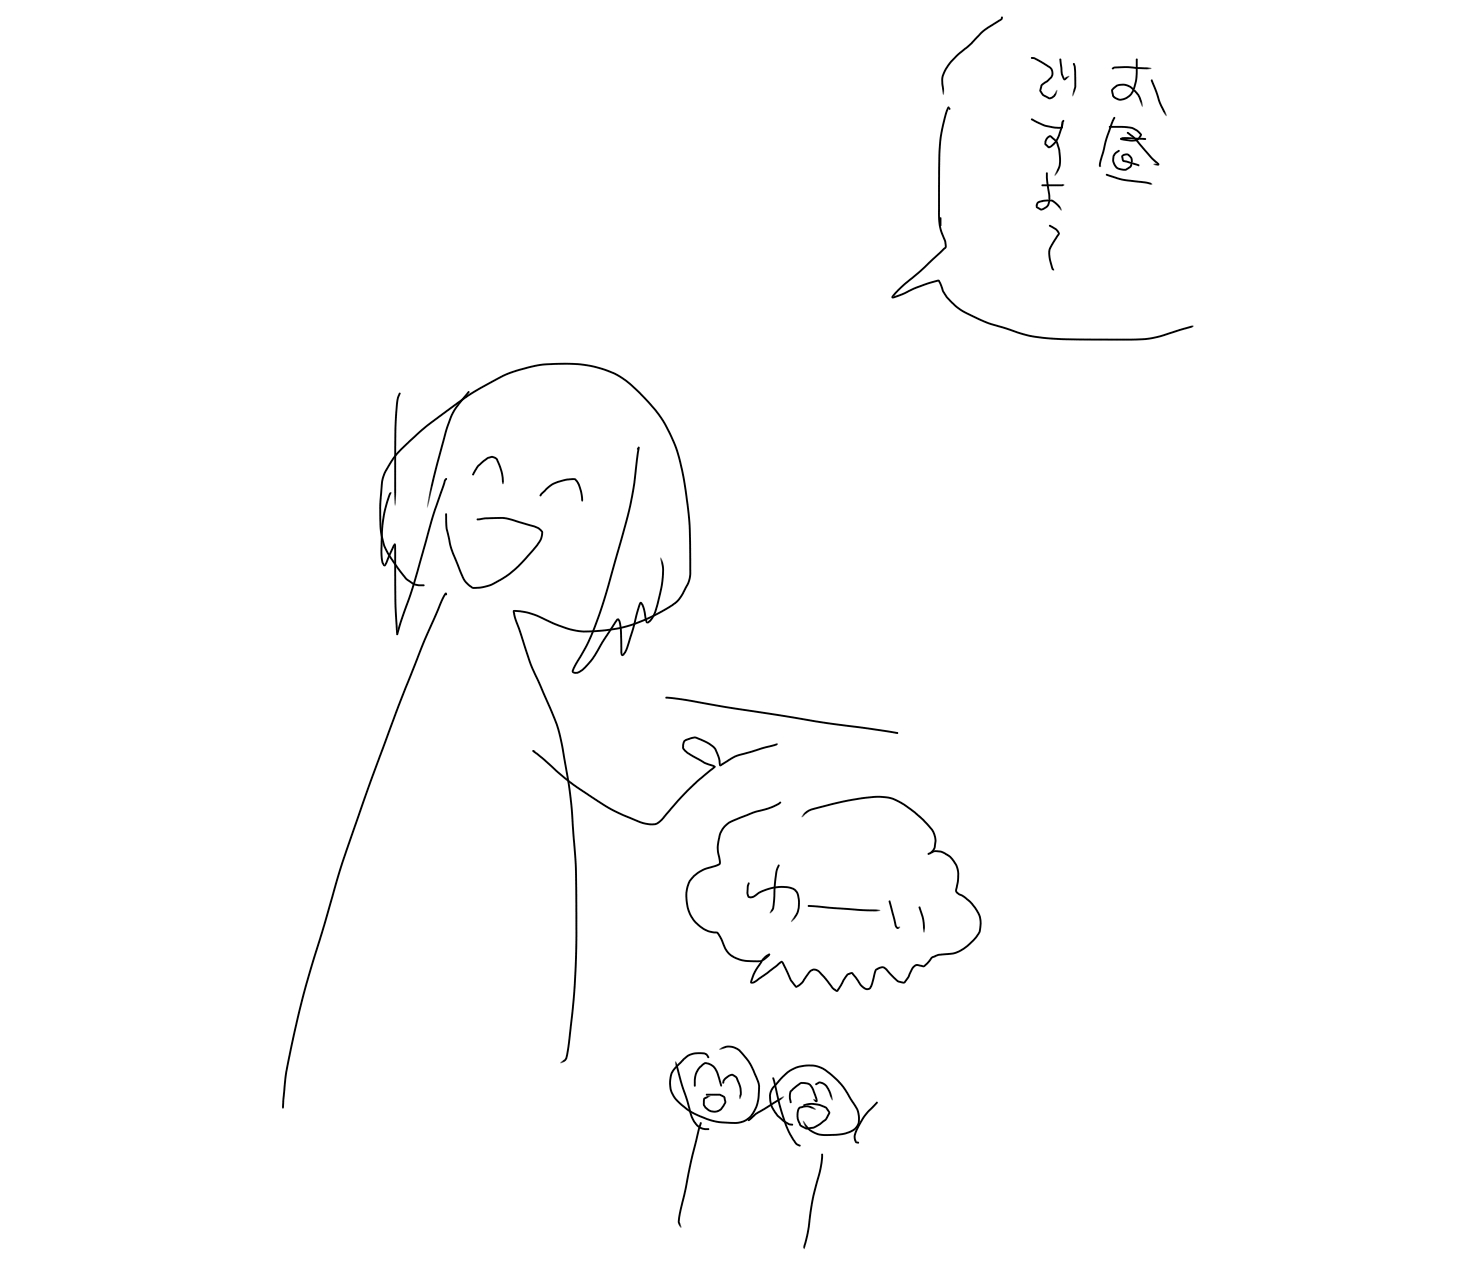 お昼
ですよ~
わーい